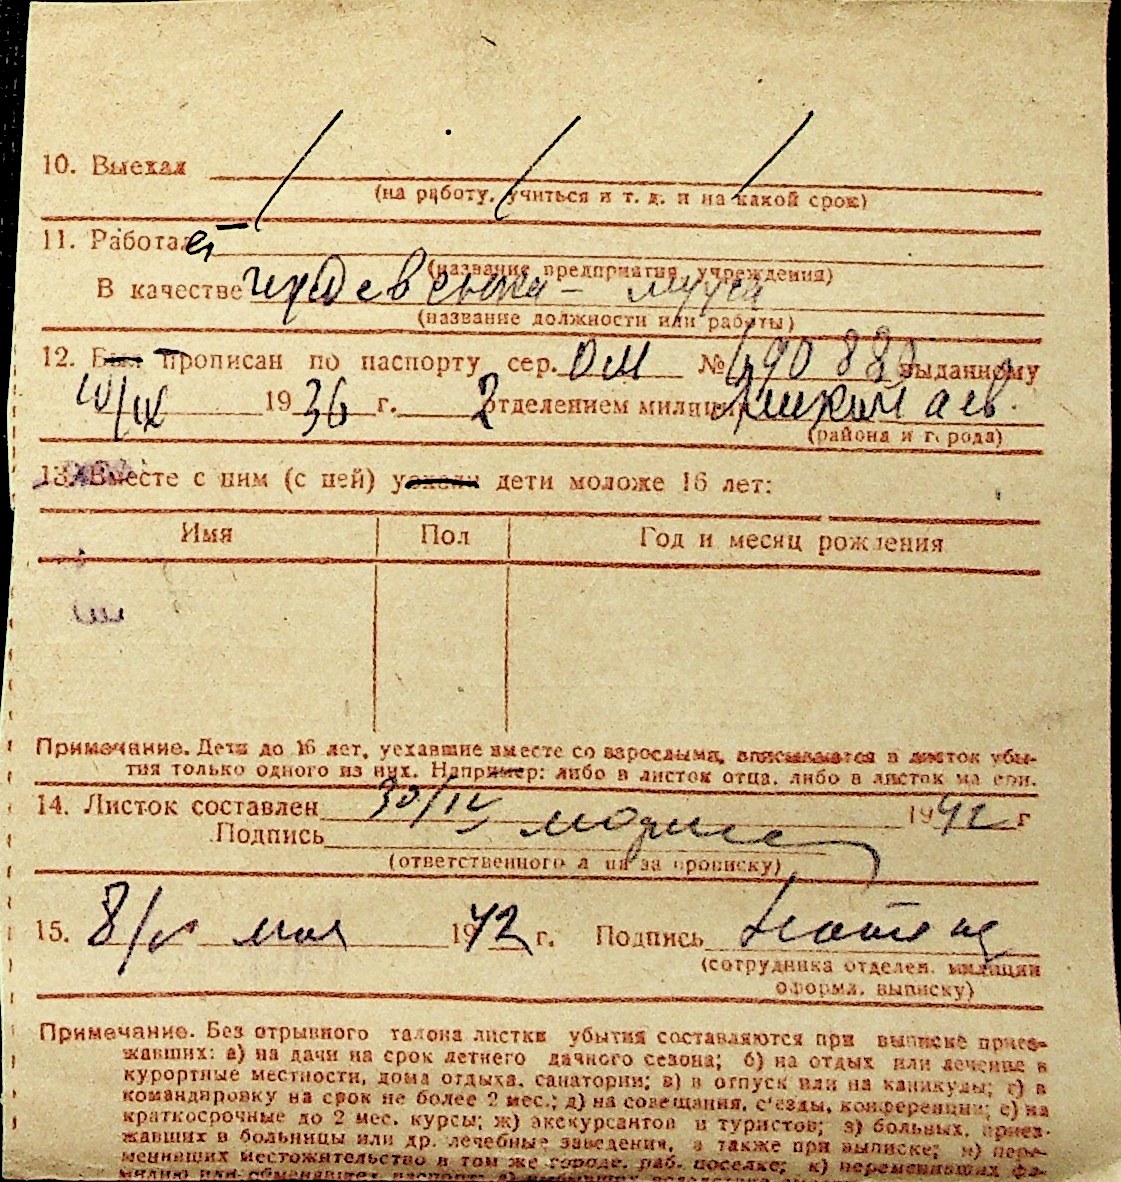 10. Выехал
(на работу, учиться и т. д. и на какой срок)
11. Работает
(название предприятия, учреждения)
В качестве иждевенка - мужа
(название должности или работы)
12. Был прописан по паспорту сер. ОМ № 690 882 выданному
19 36 г. 2 отделением милиции
(района и города)
13. Вместе с ним (с ней) уехали дети моложе 16 лет:
Имя Пол Год и месяц рождения
Примечание. Дети до 16 лет, уехавшие вместе со взрослыми, вписываются в листок убы-
тия только одного из них. Например: либо в листок отца, либо в листок матери.
14. Листок составлен 30/IV 1942 г
Подпись
(ответственного лица за прописку)
15. 8/V мая 1942 г. Подпись
(сотрудника отделен. милиции
оформл. выписку)
Примечание. Без отрывного талона листки убытия составляются при выписке приез-
жавших: а) на дачи на срок летнего дачного сезона; б) на отдых или лечение в
курортные местности, дома отдыха, санатории; в) в отпуск или на каникулы; г) в
командировку на срок не более 2 мес.; д) на совещания, с'езды, конференции; е) на
краткосрочные до 2 мес. курсы; ж) экскурсантов и туристов; з) больных, приез-
жавших в больницы или др. лечебные заведения, а также при выписке; и) пере-
менивших местожительство в том же городе, раб. поселке; к) переменивших фа-
милию или обменявших паспорт;